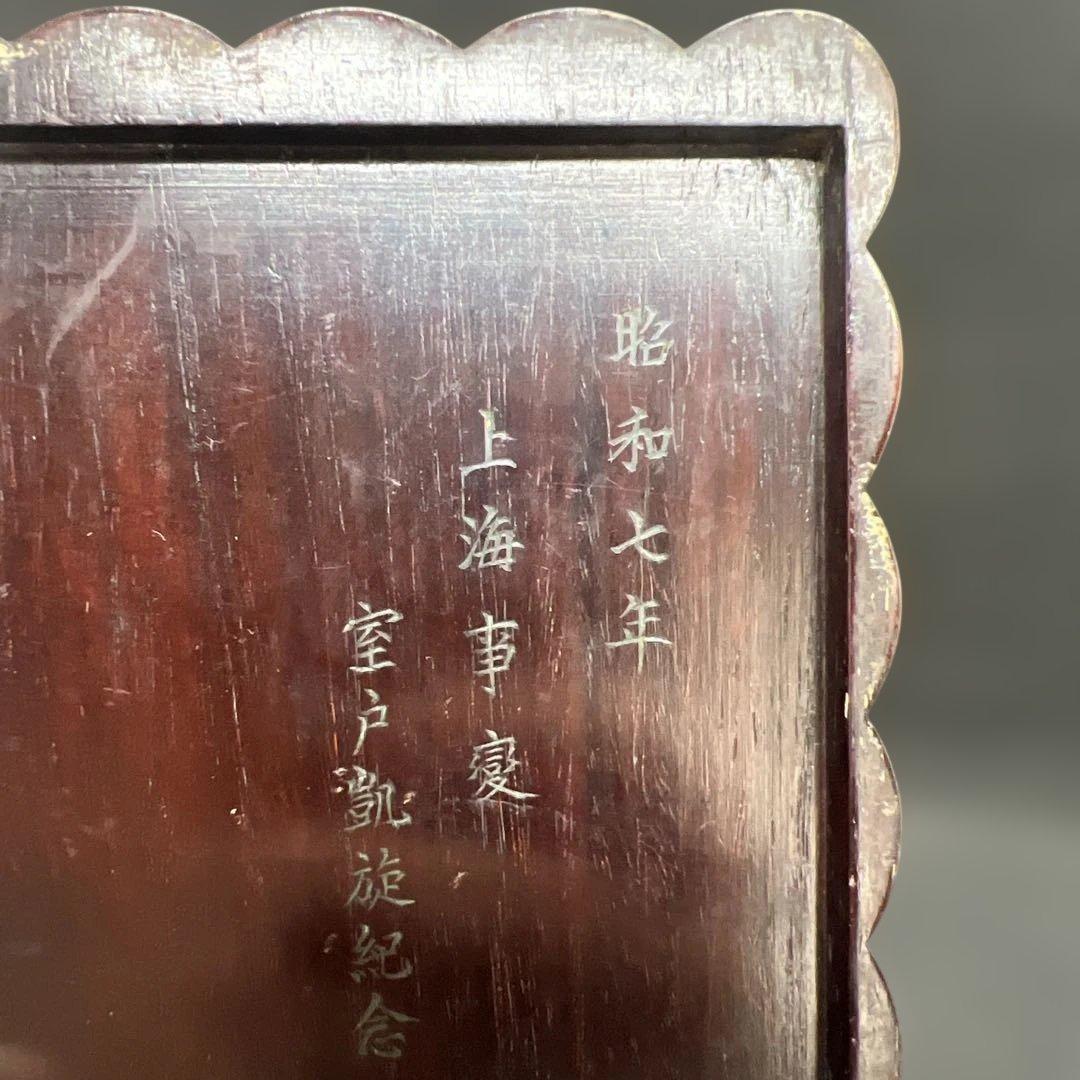 昭和七年
上海事變
室戸凱旋紀念